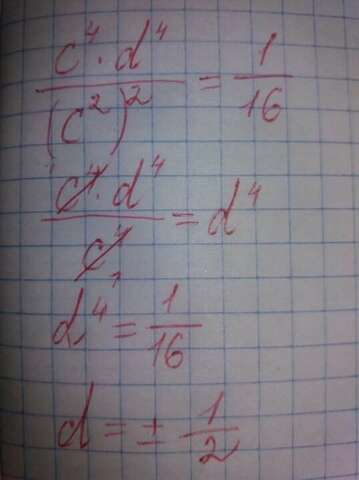 c⁴ · d⁴ / (c²)² = 1/16
c⁴ · d⁴ / c⁴ = d⁴
d⁴ = 1/16
d = ± 1/2